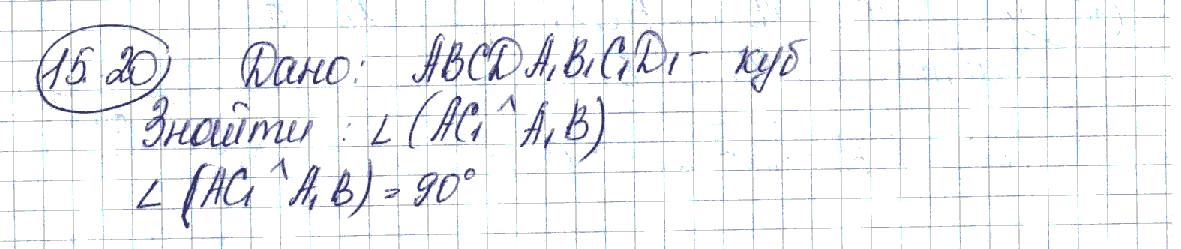 15.20 Дано: ABCDA₁B₁C₁D₁ - куб
Знайти: ∠(AC₁ ^ A₁B)
∠(AC₁ ^ A₁B) = 90°